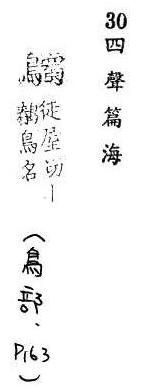 30四聲篇海
徒屋切
鳥名
(鳥部、P163)